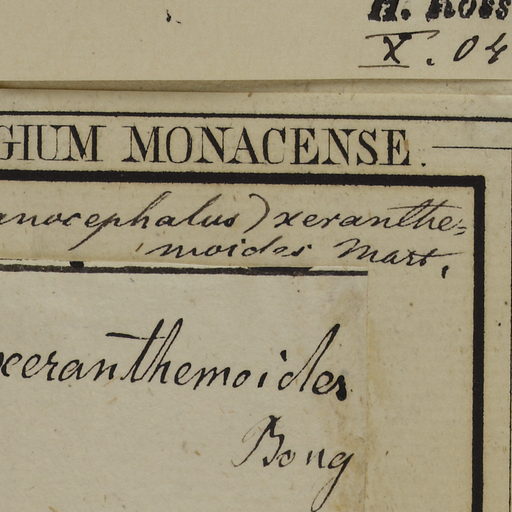 H. Ross
X. 04
GIUM MONACENSE.
anocephalus) xeranthe=
moides Mart,
xeranthemoides
Bong